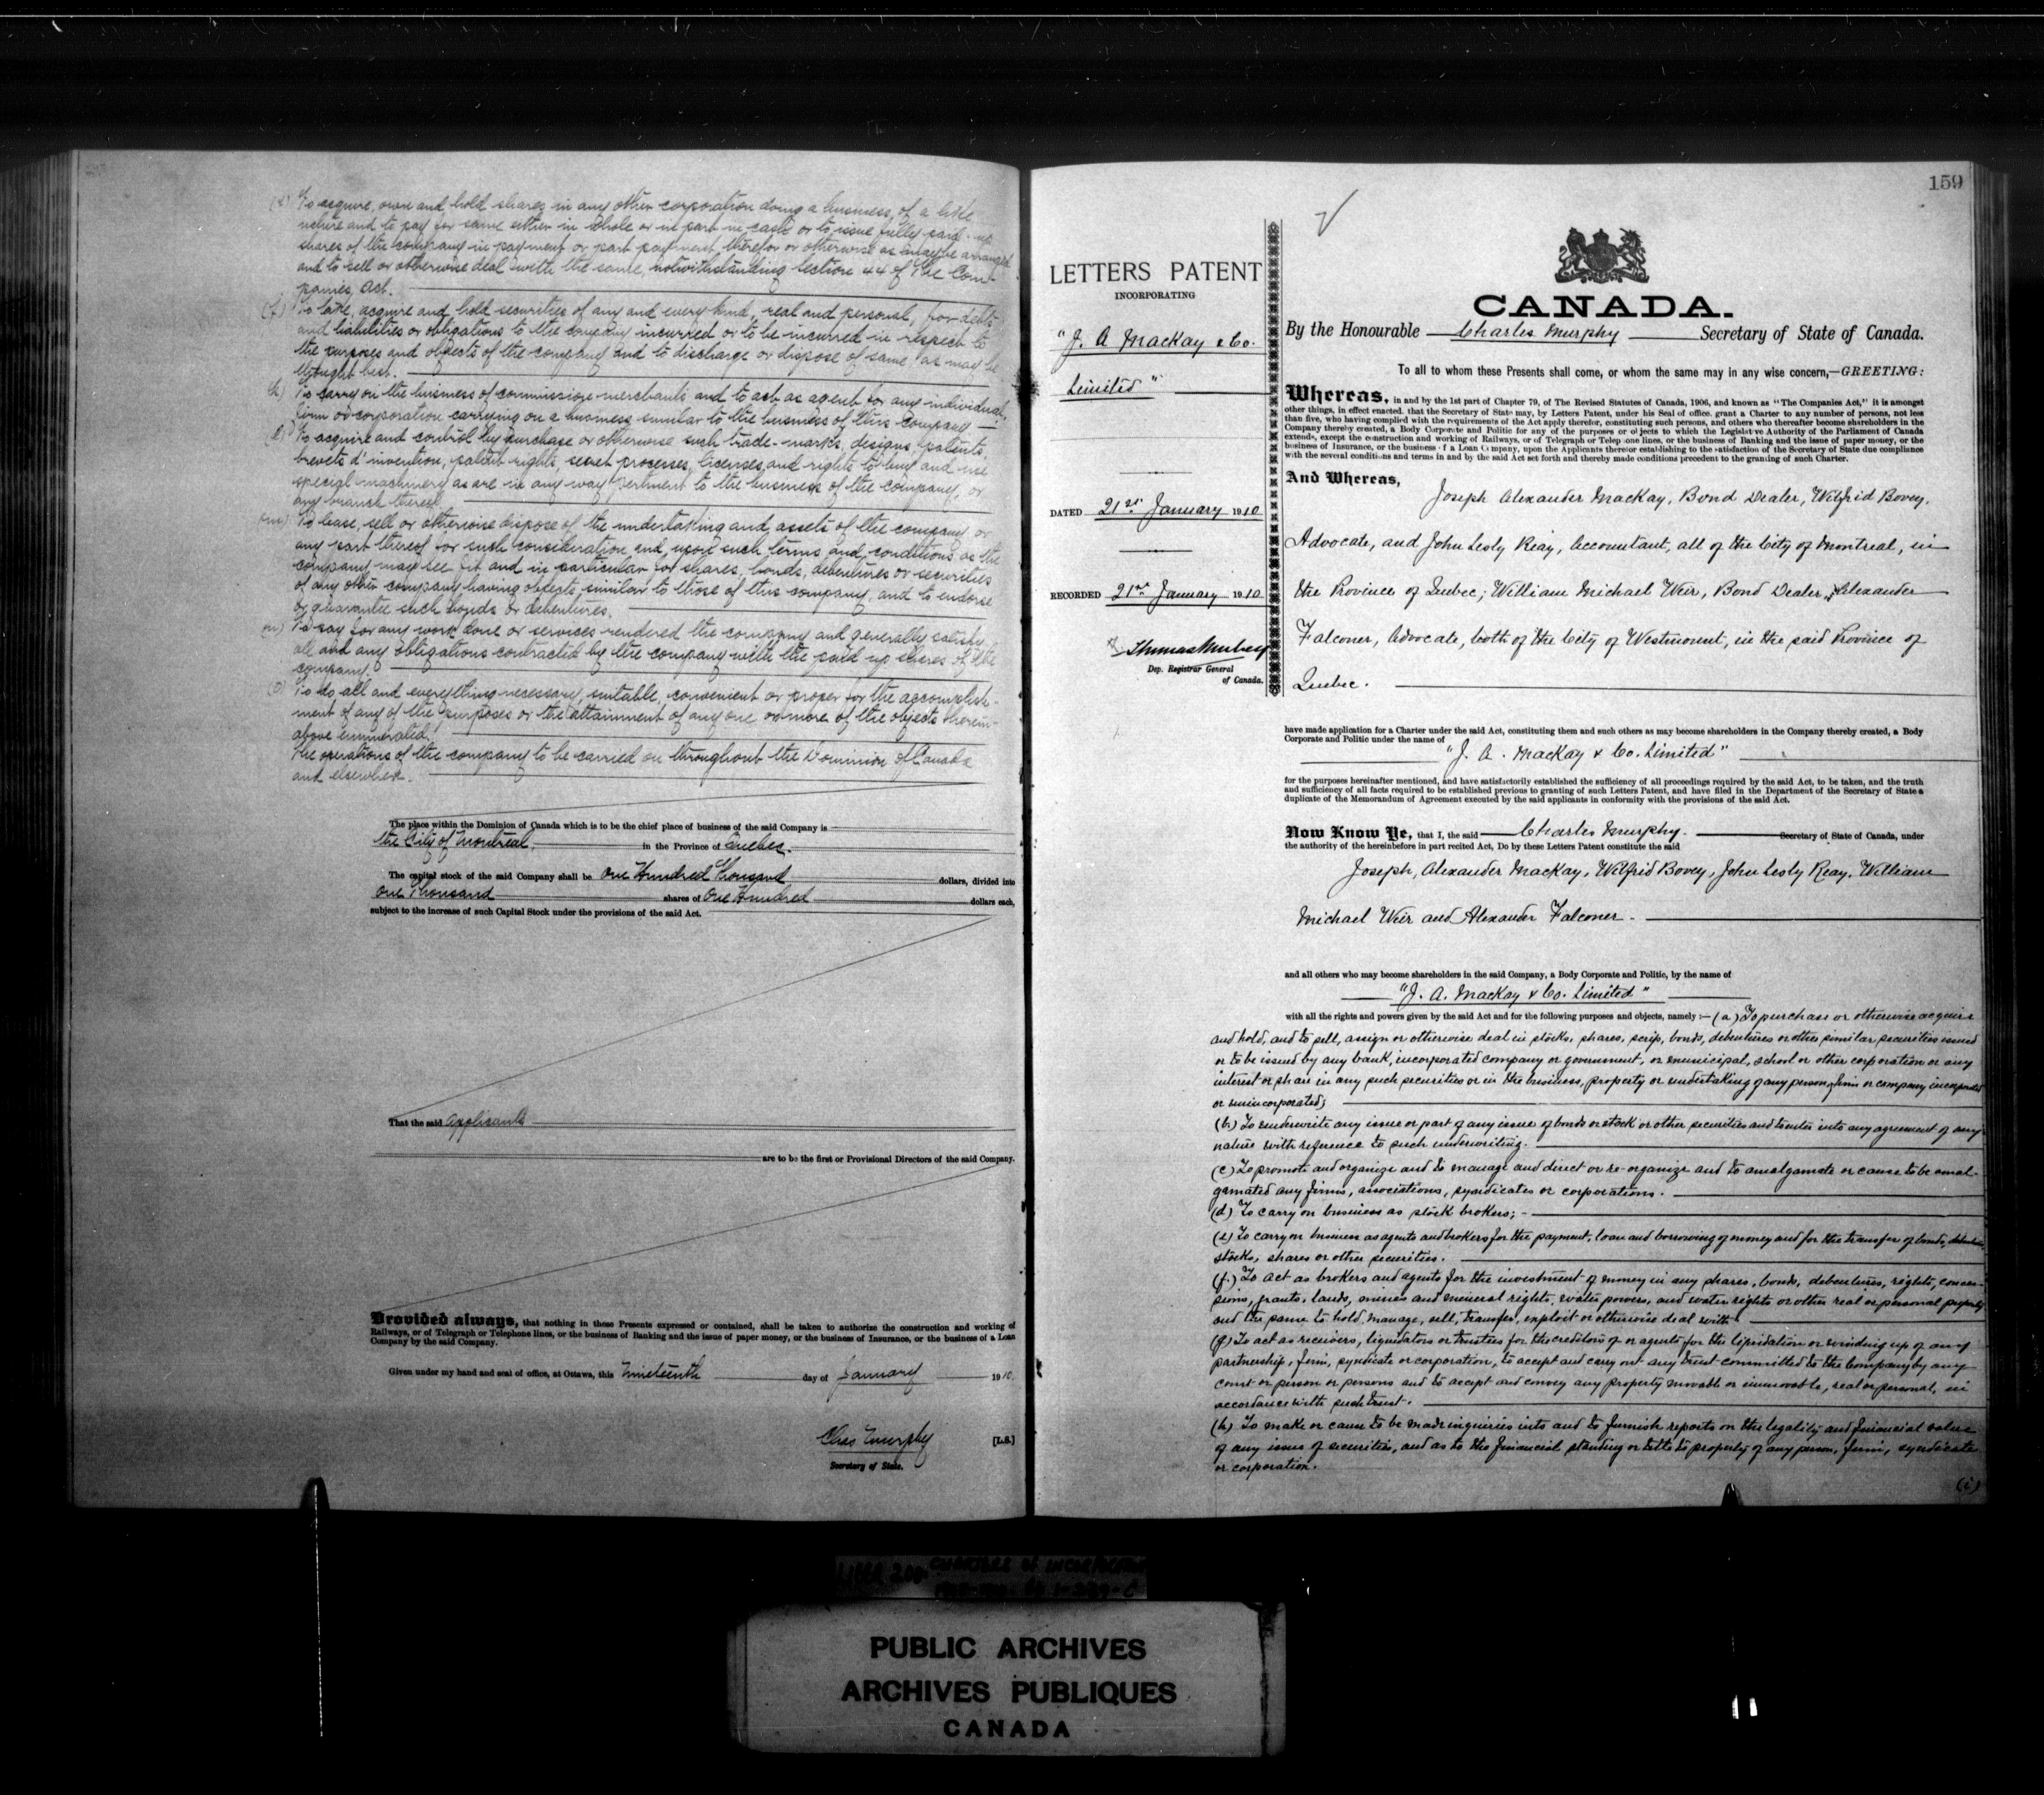 To acquire, own and hold shares in any other corporation doing a business, of a like
nature and to pay for same either in whole or in part in cash or to issue fully paid-up
shares of the company in payment or part payment therefor or otherwise as may be arranged
and to sell or otherwise deal with the same, notwithstanding Section 44 of The Com-
panies Act.
To take, acquire and hold securities of any and every kind, real and personal, for debts
and liabilities or obligations to the company incurred or to be incurred in respect to
the purposes and objects of the company and to discharge or dispose of same as may be
thought best.
(k) To carry on the business of commission merchants and to act as agent for any individual,
firm or corporation carrying on a business similar to the business of this company
(l) To acquire and control by purchase or otherwise such trade-marks, designs, patents,
brevets d'invention, patent rights, secret processes, licenses, and rights to buy and use
special machinery as are in any way pertinent to the business of the company, or
any branch thereof
(m) To lease, sell or otherwise dispose of the undertaking and assets of the company or
any part thereof for such consideration and, upon such terms and conditions as the
company may see fit and in particular for shares, bonds, debentures or securities
of any other company having objects similar to those of this company, and to endorse
or guarantee such bonds or debentures.
(n) To pay for any work done or services rendered the company and generally satisfy
all and any obligations contracted by the company with the paid up shares of the
company.
(o) To do all and everything necessary, suitable, convenient or proper for the accomplish-
ment of any of the purposes or the attainment of any one or more of the objects herein-
above enumerated.
The operations of the company to be carried on throughout the Dominion of Canada
and elsewhere.
The place within the Dominion of Canada which is to be the chief place of business of the said Company is
the City of Montreal, in the Province of Quebec.
The capital stock of the said Company shall be One Hundred Thousand dollars, divided into
One Thousand shares of One Hundred dollars each,
subject to the increase of such Capital Stock under the provisions of the said Act.
That the said applicants
are to be the first or Provisional Directors of the said Company.
Provided always, that nothing in these Presents expressed or contained, shall be taken to authorize the construction and working of
Railways, or of Telegraph or Telephone lines, or the business of Banking and the issue of paper money, or the business of Insurance, or the business of a Loan
Company by the said Company.
Given under my hand and seal of office, at Ottawa, this Nineteenth day of January 1910.
Chas Murphy [L.S.]
Secretary of State.
159
LETTERS PATENT
INCORPORATING
"J. A Mackay & Co.
Limited"
DATED 21st January 1910
RECORDED 21st January 1910
Thomas Mulvey
Dep. Registrar General
of Canada.
CANADA.
By the Honourable Charles Murphy Secretary of State of Canada.
To all to whom these Presents shall come, or whom the same may in any wise concern,—GREETING:
Whereas, in and by the 1st part of Chapter 79, of The Revised Statutes of Canada, 1906, and known as "The Companies Act," it is amongst
other things, in effect enacted, that the Secretary of State may, by Letters Patent, under his Seal of office, grant a Charter to any number of persons, not less
than five, who having complied with the requirements of the Act apply therefor, constituting such persons, and others who thereafter become shareholders in the
Company thereby created, a Body Corporate and Politic for any of the purposes or objects to which the Legislative Authority of the Parliament of Canada
extends, except the construction and working of Railways, or of Telegraph or Telephone lines, or the business of Banking and the issue of paper money, or the
business of Insurance, or the business of a Loan Company, upon the Applicants therefor establishing to the satisfaction of the Secretary of State due compliance
with the several conditions and terms in and by the said Act set forth and thereby made conditions precedent to the granting of such Charter.
And Whereas,
Joseph Alexander Mackay, Bond Dealer, Wilfrid Bovey,
Advocate, and John Lesly Reay, Accountant, all of the City of Montreal, in
the Province of Quebec; William Michael Weir, Bond Dealer, Alexander
Falconer, Advocate, both of the City of Westmount, in the said Province of
Quebec.
have made application for a Charter under the said Act, constituting them and such others as may become shareholders in the Company thereby created, a Body
Corporate and Politic under the name of
"J. A. Mackay & Co. Limited"
for the purposes hereinafter mentioned, and have satisfactorily established the sufficiency of all proceedings required by the said Act, to be taken, and the truth
and sufficiency of all facts required to be established previous to granting of such Letters Patent, and have filed in the Department of the Secretary of State a
duplicate of the Memorandum of Agreement executed by the said applicants in conformity with the provisions of the said Act.
Now Know Ye, that I, the said Charles Murphy. Secretary of State of Canada, under
the authority of the hereinbefore in part recited Act, Do by these Letters Patent constitute the said
Joseph, Alexander Mackay, Wilfrid Bovey, John Lesly Reay, William
Michael Weir and Alexander Falconer.
and all others who may become shareholders in the said Company, a Body Corporate and Politic, by the name of
"J. A. Mackay & Co. Limited"
with all the rights and powers given by the said Act and for the following purposes and objects, namely:—(a) To purchase or otherwise acquire
and hold, and to sell, assign or otherwise deal in stocks, shares, scrip, bonds, debentures or other similar securities issued
or to be issued by any bank, incorporated company or government, or municipal, school or other corporation or any
interest or share in any such securities or in the business, property or undertaking of any person, firm or company incorporated
or unincorporated;
(b) To underwrite any issue or part of any issue of bonds or stock or other securities and to enter into any agreement of any
nature with reference to such underwriting.
(c) To promote and organize and to manage and direct or re-organize and to amalgamate or cause to be amal-
gamated any firms, associations, syndicates or corporations.
(d) To carry on business as stock brokers;
(e) To carry on business as agents and brokers for the payment, loan and borrowing of money and for the transfer of bonds, debentures,
stocks, shares or other securities.
(f.) To act as brokers and agents for the investment of money in any shares, bonds, debentures, rights, conces-
sions, grants, lands, mines and mineral rights, water powers, and water rights or other real or personal property
and the same to hold, manage, sell, transfer, exploit or otherwise deal with
(g) To act as receivers, liquidators or trustees for the creditors of or agents for the liquidation or winding up of any
partnership, firm, syndicate or corporation, to accept and carry out any trust committed to the Company by any
court or person or persons and to accept and convey any property movable or immovable, real or personal, in
accordance with such trust.
(h) To make or cause to be made inquiries into and to furnish reports on the legality and financial value
of any issue of securities, and as to the financial standing or title to property of any person, firm, syndicate
or corporation.
(i)
PUBLIC ARCHIVES
ARCHIVES PUBLIQUES
CANADA